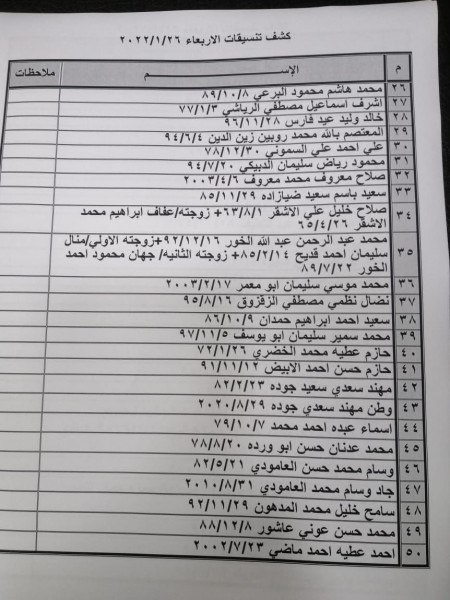 كشف تنسيقات الاربعاء ٢٠٢٢/١/٢٦
م الإســـــم ملاحظات
٢٦ محمد هاشم محمود البرعي ٨٩/١٠/٨
٢٧ اشرف اسماعيل مصطفي الرياشي ٧٧/١/٣
٢٨ خالد وليد عيد فارس ٩٦/١١/٢٨
٢٩ المعتصم بالله محمد روبين زين الدين ٩٤/٦/٤
٣٠ علي احمد علي السموني ٧٨/١٢/٣٠
٣١ محمود رياض سليمان الدبيكي ٩٤/٧/٢٠
٣٢ صلاح معروف محمد معروف ٢٠٠٣/٤/٦
٣٣ سعيد باسم سعيد ضبازاده ٨٥/١١/٢٩
٣٤ صلاح خليل علي الاشقر ٦٣/٨/١+ زوجته/عفاف ابراهيم محمد
الاشقر ٦٥/٤/٢٦
٣٥ محمد عبد الرحمن عبد الله الخور ٩٢/١٢/١٦+زوجته الاولي/منال
سليمان احمد قديح ٨٥/٢/١٤+ زوجته الثانيه/ جهان محمود احمد
الخور ٨٩/٧/٢٢
٣٦ محمد موسي سليمان ابو معمر ٢٠٠٣/٢/١٧
٣٧ نضال نظمي مصطفي الزقزوق ٩٥/٨/١٦
٣٨ سعيد احمد ابراهيم حمدان ٨٦/١٠/٩
٣٩ محمد سمير سليمان ابو يوسف ٩٧/١١/٥
٤٠ حازم عطيه محمد الخضري ٧٢/١/٢٦
٤١ حازم حسن احمد الابيض ٩١/١١/١٢
٤٢ مهند سعدي سعيد جوده ٨٢/٢/٢٣
٤٣ وطن مهند سعدي جوده ٢٠٢٠/٨/٢٩
٤٤ اسماء عبده احمد محمد ٧٩/١٠/٧
٤٥ محمد عدنان حسن ابو ورده ٧٨/٨/٢٠
٤٦ وسام محمد حسن العامودي ٨٢/٥/٢١
٤٧ جاد وسام محمد العامودي ٢٠١٠/٨/٣١
٤٨ سامح خليل محمد المدهون ٩٢/١١/٢٩
٤٩ محمد حسن عوني عاشور ٨٨/١٢/٨
٥٠ احمد عطيه احمد ماضي ٢٠٠٢/٧/٢٣